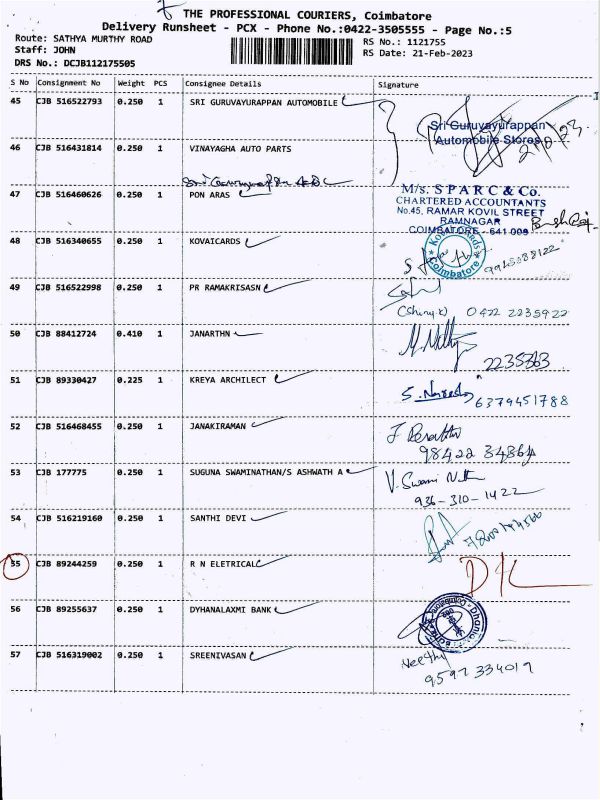 THE PROFESSIONAL COURIERS, Coimbatore
Delivery Runsheet - PCX - Phone No.:0422-3505555 - Page No.:5
Route: SATHYA MURTHY ROAD
RS No.: 1121755
Staff: JOHN
RS Date: 21-Feb-2023
DRS No.: DCJB112175505
S No Consignment No Weight PCS Consignee Details Signature
45 CJB 516522793 0.250 1 SRI GURUVAYURAPPAN AUTOMOBILE
Sri Guruvayurappan
Automobile Stores
46 CJB 516431814 0.250 1 VINAYAGHA AUTO PARTS
47 CJB 516460626 0.250 1 PON ARAS
M/s. SPARC & Co.
CHARTERED ACCOUNTANTS
No.45, RAMAR KOVIL STREET
RAMNAGAR
COIMBATORE - 641 009
48 CJB 516340655 0.250 1 KOVAICARDS
Kovai Cards
Coimbatore
49 CJB 516522998 0.250 1 PR RAMAKRISASN
0422 2235922
50 CJB 88412724 0.410 1 JANARTHN
51 CJB 89330427 0.225 1 KREYA ARCHITECT
6379451788
52 CJB 516468455 0.250 1 JANAKIRAMAN
53 CJB 177775 0.250 1 SUGUNA SWAMINATHAN/S ASHWATH A
936-310-1422
54 CJB 516219160 0.250 1 SANTHI DEVI
55 CJB 89244259 0.250 1 R N ELETRICAL
56 CJB 89255637 0.250 1 DYHANALAXMI BANK
57 CJB 516319002 0.250 1 SREENIVASAN
9597 334019